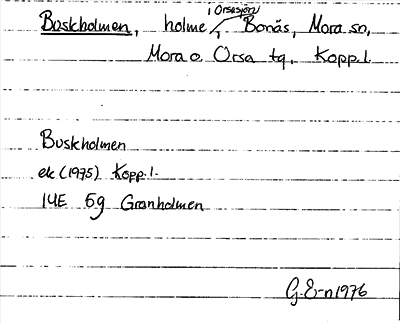 Buskholmen, holme i Orsasjön, Bonäs, Mora sn,
Mora o. Orsa tg, Kopp.l.
Buskholmen
ek (1975) Kopp.l.
14E 5g Granholmen
G.E-n 1976